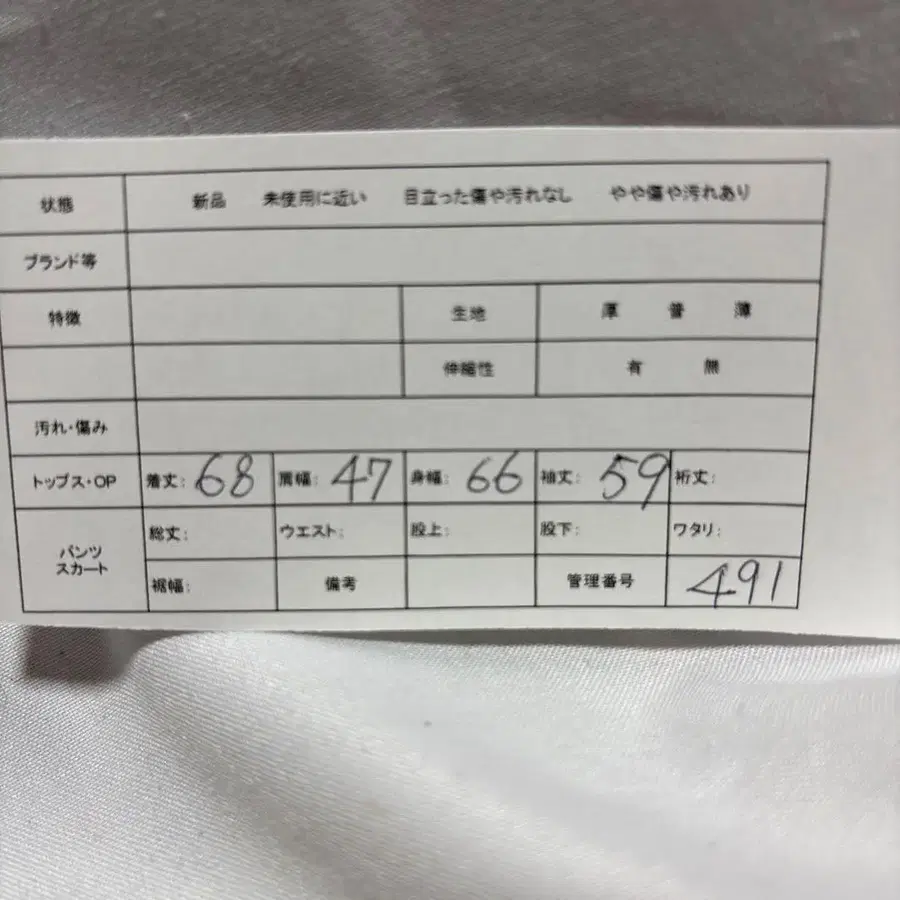 状態 新品 未使用に近い 目立った傷や汚れなし やや傷や汚れあり
ブランド等
特徴 生地 厚 普 薄
伸縮性 有 無
汚れ・傷み
トップス・OP 着丈: 68 肩幅: 47 身幅: 66 袖丈: 59 裄丈:
パンツ スカート
総丈: ウエスト: 股上: 股下: ワタリ:
裾幅: 備考 管理番号 491